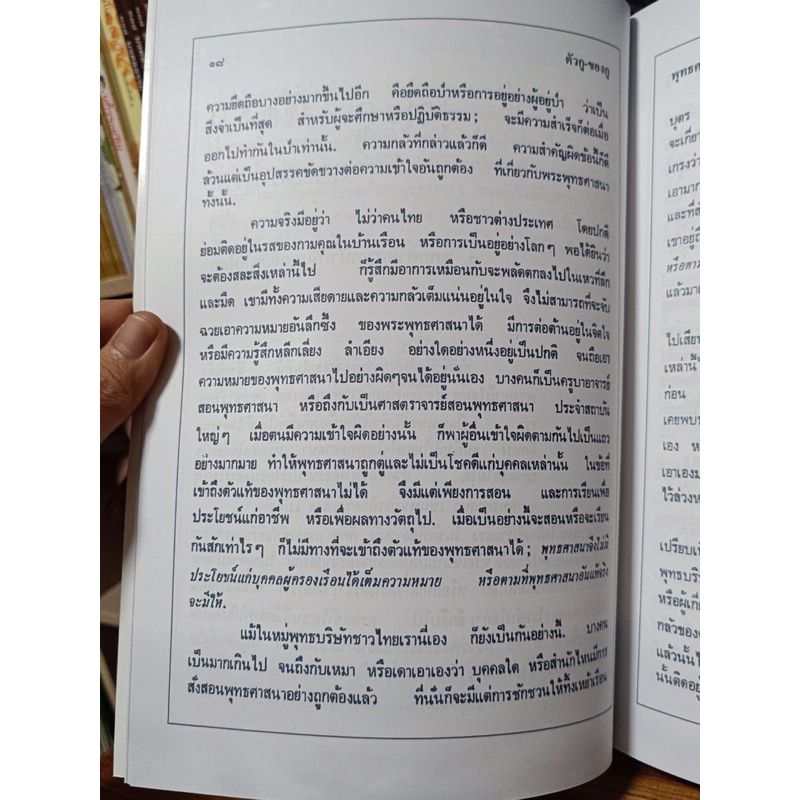 ๑๘ ตัวกู-ของกู
ความยึดถือบางอย่างมากขึ้นไปอีก คือยึดถือป่าหรือการอยู่อย่างผู้อยู่ป่า ว่าเป็น
สิ่งจำเป็นที่สุด สำหรับผู้จะศึกษาหรือปฏิบัติธรรม; จะมีความสำเร็จก็ต่อเมื่อ
ออกไปทำกันในป่าเท่านั้น. ความกลัวที่กล่าวแล้วก็ดี ความสำคัญผิดข้อนี้ก็ดี
ล้วนแต่เป็นอุปสรรคขัดขวางต่อความเข้าใจอันถูกต้อง ที่เกี่ยวกับพระพุทธศาสนา
ทั้งนั้น.
ความจริงมีอยู่ว่า ไม่ว่าคนไทย หรือชาวต่างประเทศ โดยปกติ
ย่อมติดอยู่ในรสของกามคุณในบ้านเรือน หรือการเป็นอยู่อย่างโลกๆ พอได้ยินว่า
จะต้องสละสิ่งเหล่านี้ไป ก็รู้สึกมีอาการเหมือนกับจะพลัดตกลงไปในเหวที่ลึก
และมืด เขามีทั้งความเสียดายและความกลัวเต็มแน่นอยู่ในใจ จึงไม่สามารถที่จะจับ
ฉวยเอาความหมายอันลึกซึ้ง ของพระพุทธศาสนาได้ มีการต่อต้านอยู่ในจิตใจ
หรือมีความรู้สึกหลีกเลี่ยง ลำเอียง อย่างใดอย่างหนึ่งอยู่เป็นปกติ จนถือเอา
ความหมายของพุทธศาสนาไปอย่างผิดๆจนได้อยู่นั่นเอง บางคนก็เป็นครูบาอาจารย์
สอนพุทธศาสนา หรือถึงกับเป็นศาสตราจารย์สอนพุทธศาสนา ประจำสถาบัน
ใหญ่ๆ เมื่อตนมีความเข้าใจผิดอย่างนั้น ก็พาผู้อื่นเข้าใจผิดตามกันไปเป็นแถว
อย่างมากมาย ทำให้พุทธศาสนาถูกตู่และไม่เป็นโชคดีแก่บุคคลเหล่านั้น ในข้อที่
เข้าถึงตัวแท้ของพุทธศาสนาไม่ได้ จึงมีแต่เพียงการสอน และการเรียนเพื่อ
ประโยชน์แก่อาชีพ หรือเพื่อผลทางวัตถุไป. เมื่อเป็นอย่างนี้จะสอนหรือจะเรียน
กันสักเท่าไรๆ ก็ไม่มีทางที่จะเข้าถึงตัวแท้ของพุทธศาสนาได้; พุทธศาสนาจึงไม่มี
ประโยชน์แก่บุคคลผู้ครองเรือนได้เต็มความหมาย หรือตามที่พุทธศาสนาอันแท้จริง
จะมีให้.
แม้ในหมู่พุทธบริษัทชาวไทยเรานี่เอง ก็ยังเป็นกันอย่างนี้. บางคน
เป็นมากเกินไป จนถึงกับเหมา หรือเดาเอาเองว่า บุคคลใด หรือสำนักไหนมีการ
สั่งสอนพุทธศาสนาอย่างถูกต้องแล้ว ที่นั่นก็จะมีแต่การชักชวนให้ทิ้งเหย้าเรือน
บุตร
จะเกี่ย
เกรงว่า
เอามาก
และที่ส
เขาอยู่ถึ
หรือตาม
แล้วมาเ
ไปเสียท
เหล่านี้ไ
ก่อน
เคยพบม
เอง ห
เอาเองม
ไว้ล่วงห
เปรียบเที
พุทธบริษั
หรือผู้เกี่
กลัวของค
แล้วนั้นไ
นั้นติดอยู่